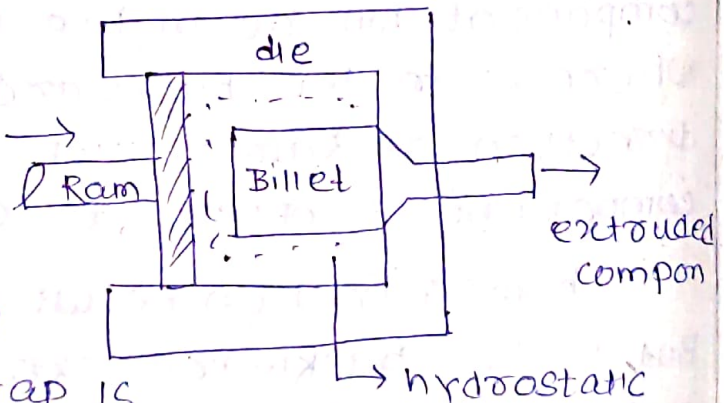 die
Ram
Billet
extruded
compon
hydrostatic
ap is